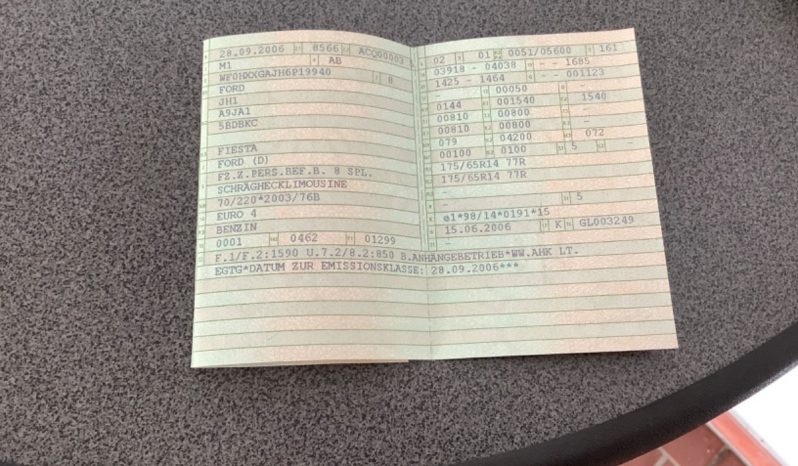 28.09.2006 8566 ACQ00003
M1 AB
WF0HXXGAJH6P19940 8
FORD
JH1
A9JA1
5BDBKC
FIESTA
FORD (D)
FZ.Z.PERS.BEF.B. 8 SPL.
SCHRÄGHECKLIMOUSINE
70/220*2003/76B
EURO 4
BENZIN
0001 0462 01299
02 01 0051/05600 161
03918 - 04038 - - 1685
1425 - 1464 - 001123
- 00050 -
0144 001540 1540
00810 00800 -
00810 00800 -
079 04200 072
00100 0100 5 -
175/65R14 77R
175/65R14 77R
-
- 5
e1*98/14*0191*15
15.06.2006 K GL003249
-
F.1/F.2:1590 U.7.2/8.2:850 B.ANHÄNGEBETRIEB*WW.AHK LT.
EGTG*DATUM ZUR EMISSIONKLASSE: 28.09.2006***